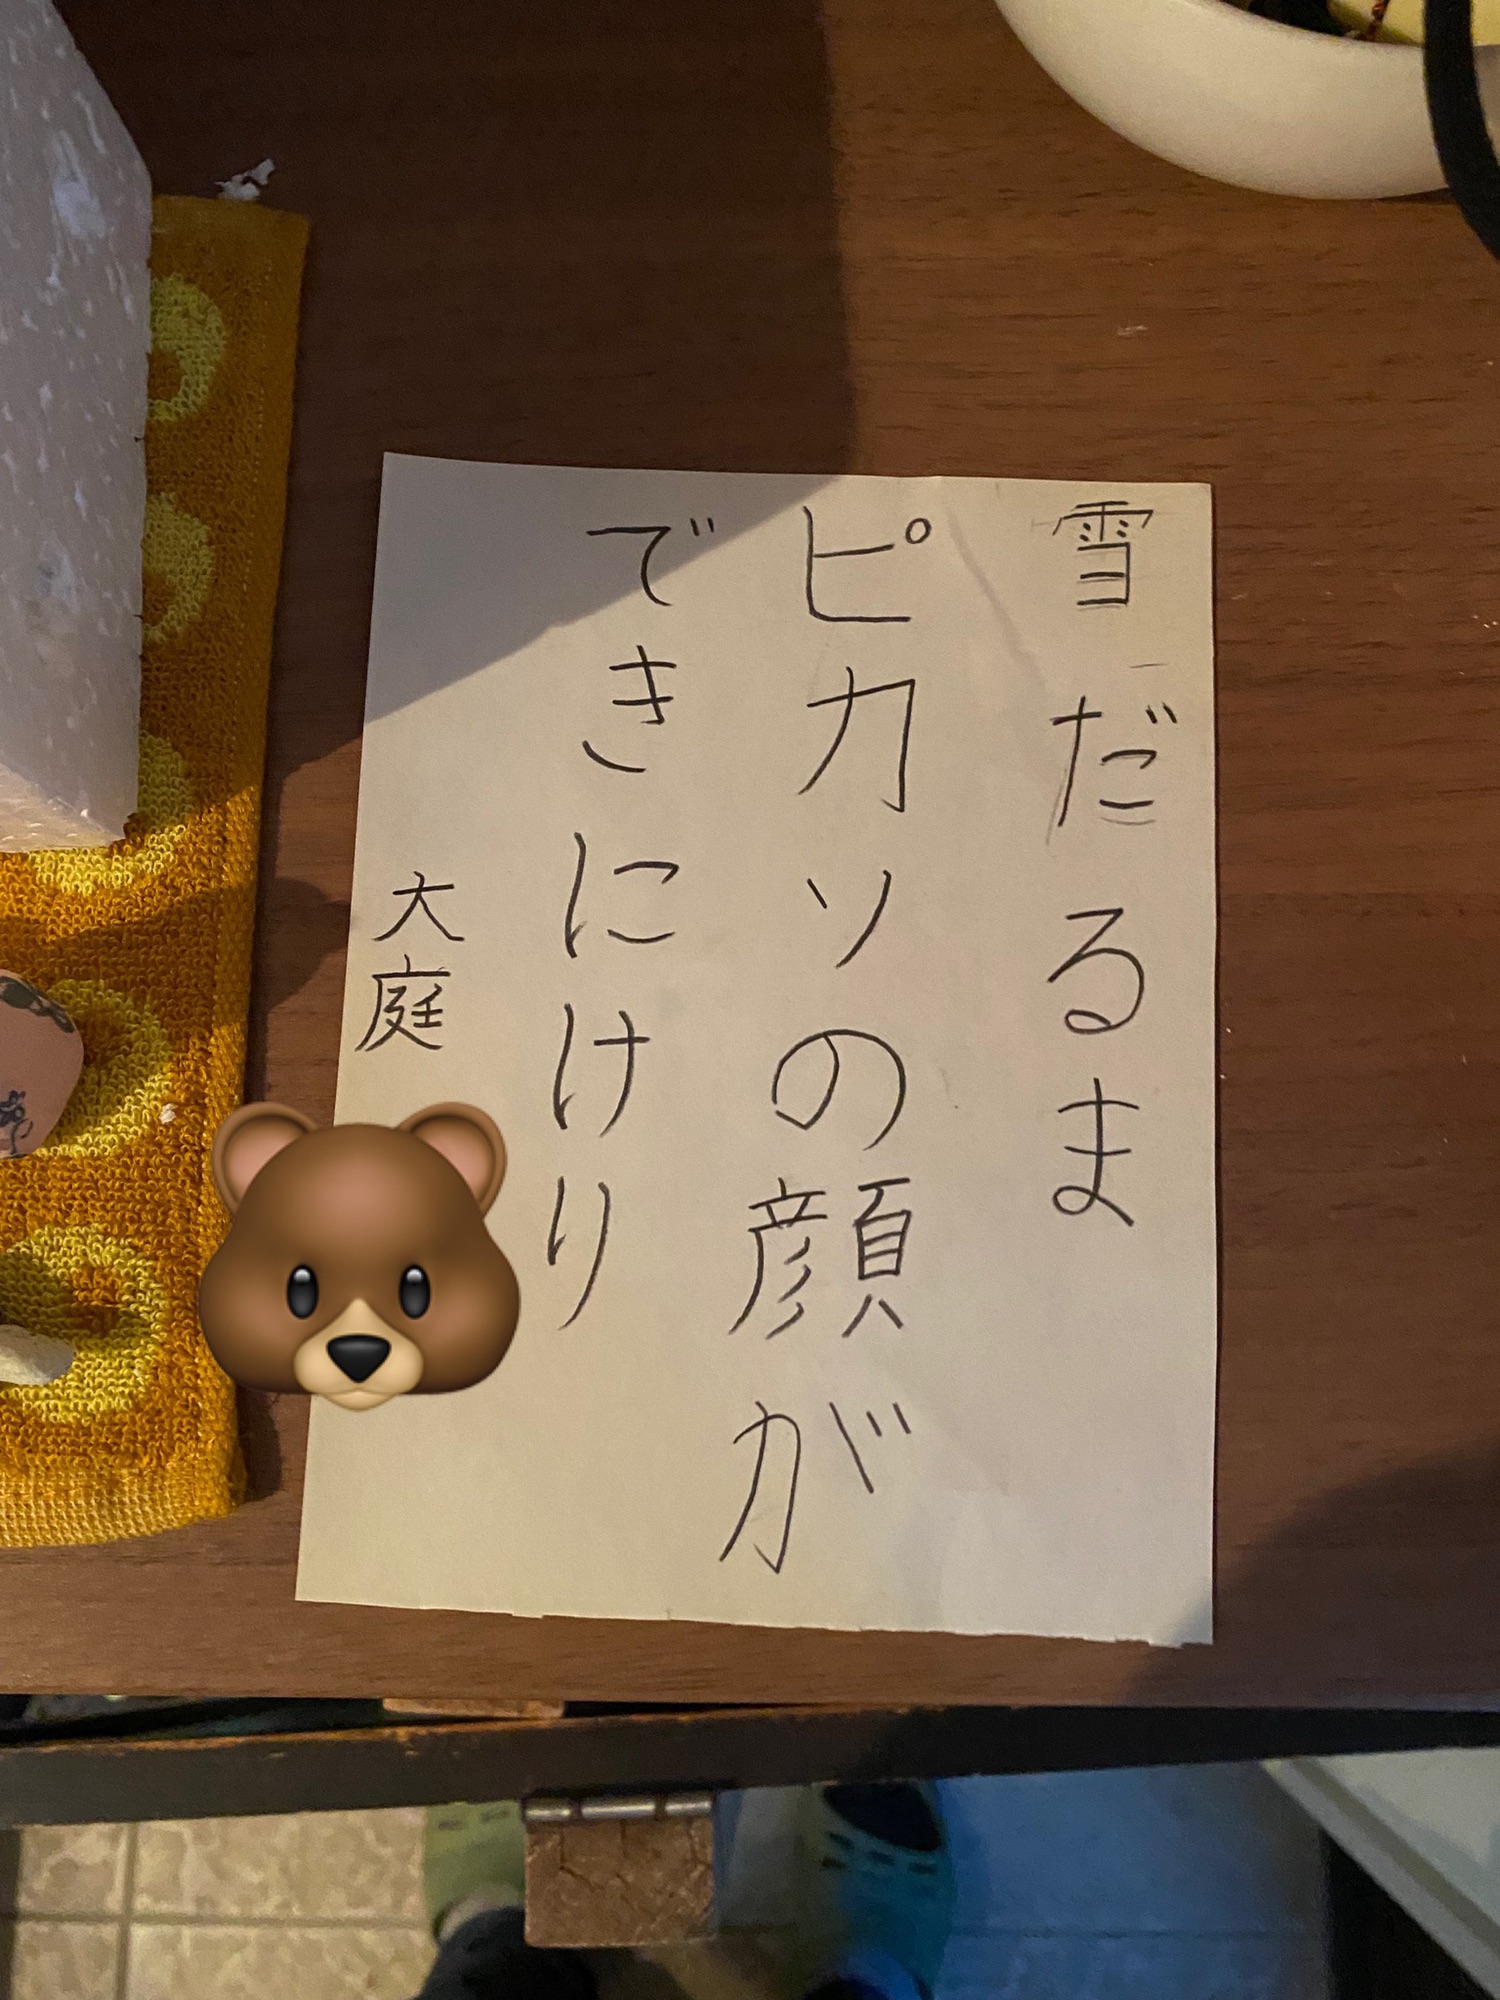 雪だるま
ピカソの顔が
できにけり
大庭